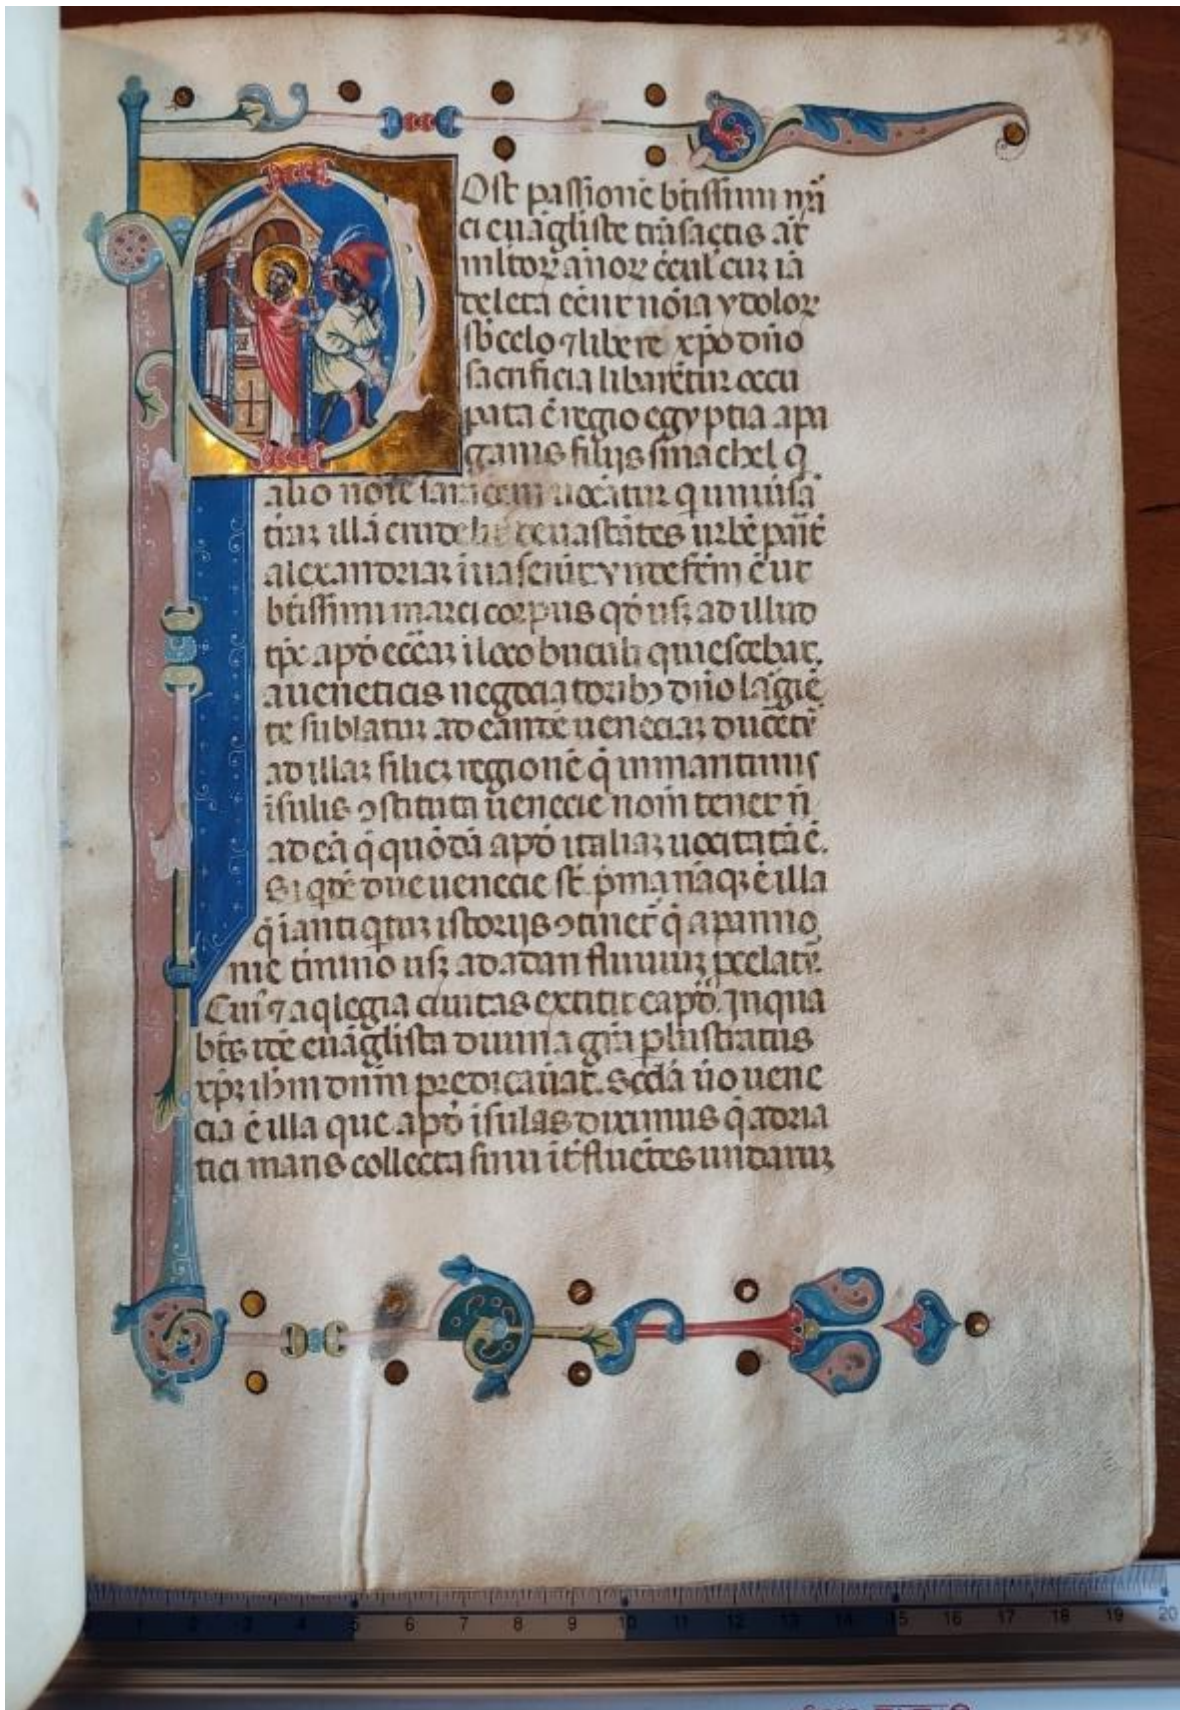 28
Ost passionē btīssimi mr̄
ci euāgliste trāsactis at̄
mltoꝝ ānoꝝ c̄cul' cuꝫ iā
deleta eēnt nōia ydoloꝝ
sb̄ celo ⁊ libere xp̄o dn̄o
sacrificia libarētur occu
pata ē regio egyptia apa
ganis filijs smachel q̄
alio noīe saraceni uocātur q uniuīsā
tr̄aꝫ illā crudelit̄ deuastātes urbē pariт̄
alexandriaꝫ īuaserūt ynde fc̄m ē ut
btīssimi marci corpus qd̄ usꝫ ad illud
tp̄c apd̄ ecc̄aꝫ ī loco buculi quiescebat.
aueneticis negociatoribꝫ dn̄o largiē
te sublatuꝫ ad eandē ueneciaꝫ ducēte
ad illaꝫ filicꝫ regionē q̄ in maritimis
īsulis ↄstituta uenecie nom̄ tenet n̄
ad eā q̄ quōdā apd̄ italiaꝫ uocitata ē.
Siqdē due uenecie st̄ p̄ma nāqꝫ ē illa
q̄ ī antiqtuꝫ istorijs ↄtinet̄ q̄ apanno
nie t̄mino usꝫ ad adan fluuiuꝫ p̄elatē.
Cui⁹ ⁊ aqlegia ciuitas extitit capd̄. In qua
bt̄s idē euāglista diuina gr̄a plustratus
xp̄ꝫ ih̄m dn̄m predicauat. Scdā ūo uene
cia ē illa que apd̄ īsulas diximus q̄ adria
tici maris collecta sinu īt̄ fluētes undaruꝫ
5 6 7 8 9 10 11 12 13 14 15 16 17 18 19 20